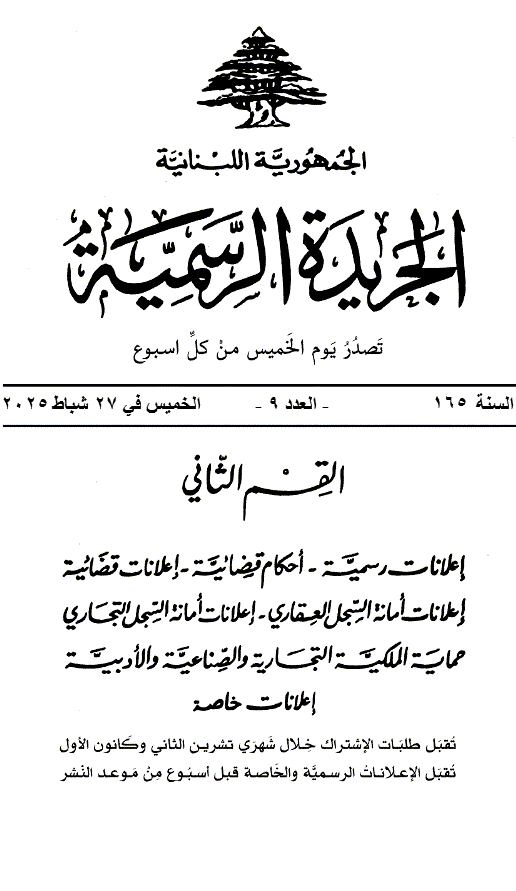 الجمهوريَّة اللبنانيَّة
الجَريدَة الرسِميَّة
تَصدُرُ يَوم الخَميس منْ كلِّ اسبوع
السنة ١٦٥ - العدد ٩ - الخميس في ٢٧ شباط ٢٠٢٥
القِسْم الثّاني
إعلانات رسميَّة - أحكام قضائيَّة - إعلانات قضائية
إعلانات أمانة السِّجل العقاري - إعلانات أمانة السِّجل التجاري
حماية الملكيَّة التجارية والصِّناعيَّة والأدبيَّة
إعلانات خاصة
تُقبَل طلبَات الإشتراك خِلال شَهرَي تشرين الثاني وكَانون الأول
تُقبَل الإعلاناتُ الرسميَّة والخَاصة قبل أسبُوع مِنْ مَوعد النّشر